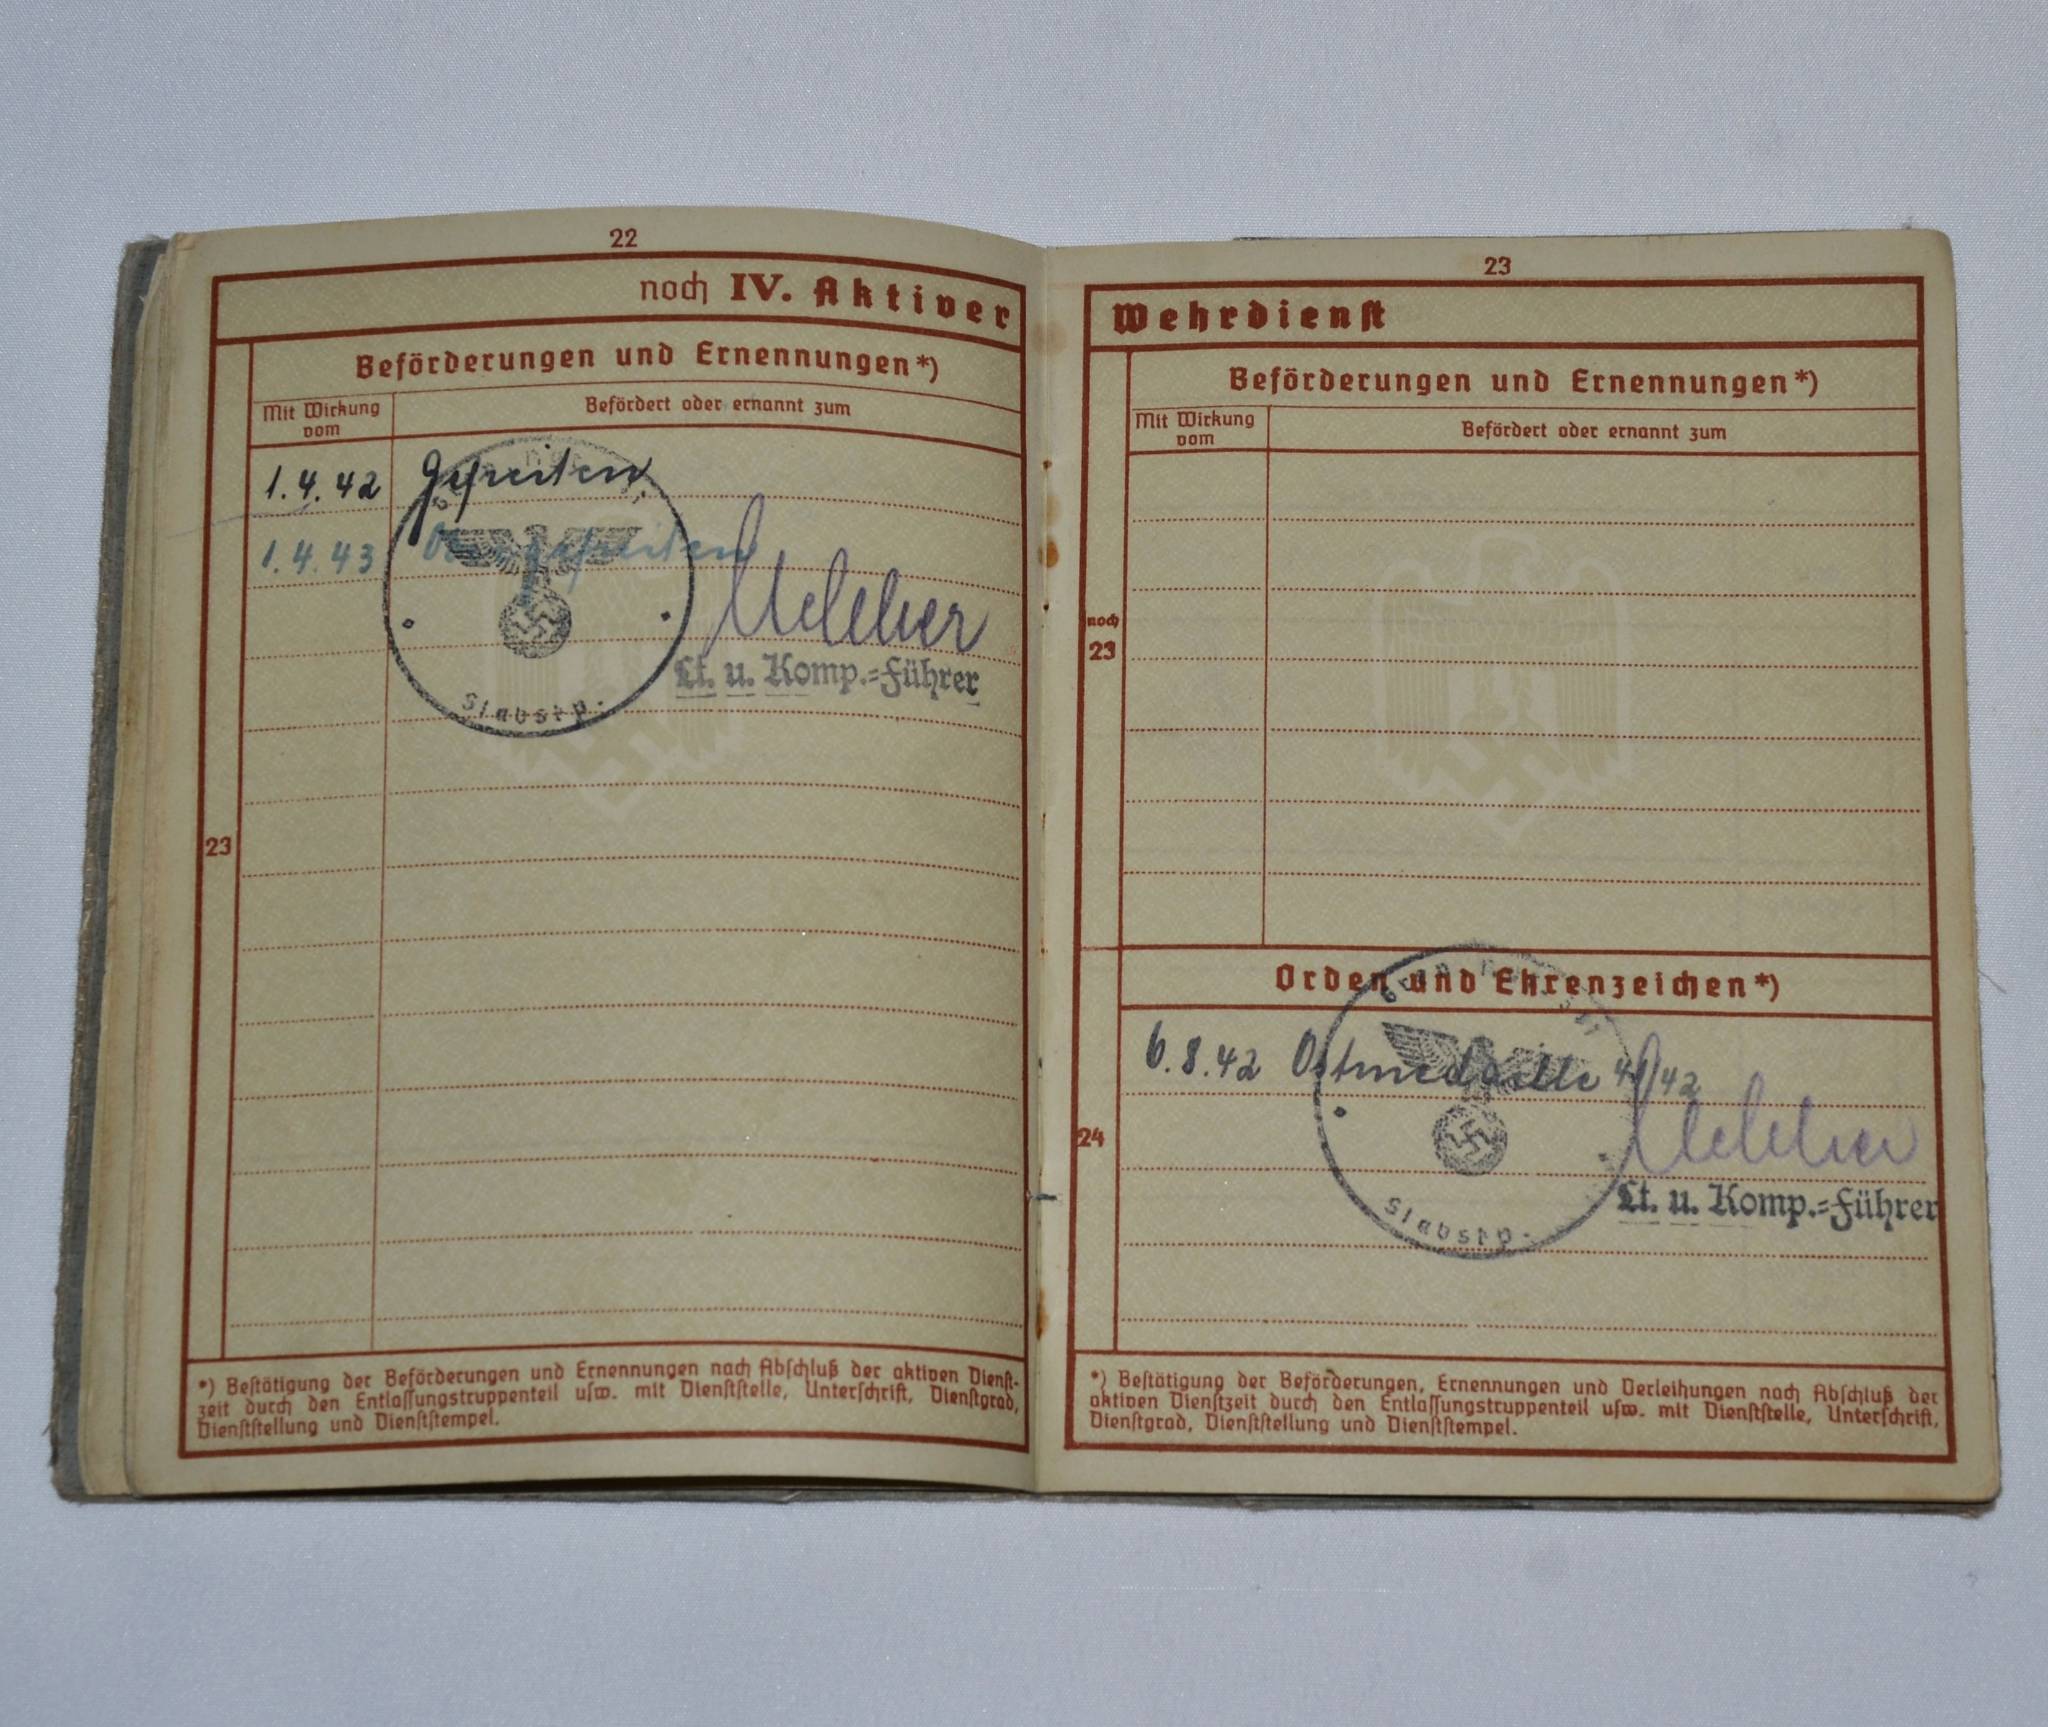 22
noch IV. Aktiver
Beförderungen und Ernennungen*)
Mit Wirkung
vom
Befördert oder ernannt zum
1.4.42 Gefreiten
1.4.43 Obergefreiten
Lt. u. Komp.=Führer
Stabskp.
23
*) Bestätigung der Beförderungen und Ernennungen nach Abschluß der aktiven Dienst-
zeit durch den Entlassungstruppenteil usw. mit Dienststelle, Unterschrift, Dienstgrad,
Dienststellung und Dienststempel.
23
Wehrdienst
Beförderungen und Ernennungen*)
Mit Wirkung
vom
Befördert oder ernannt zum
noch
23
Orden und Ehrenzeichen*)
6.8.42 Ostmedaille 41/42
24
Lt. u. Komp.=Führer
Stabskp.
*) Bestätigung der Beförderungen, Ernennungen und Verleihungen nach Abschluß der
aktiven Dienstzeit durch den Entlassungstruppenteil usw. mit Dienststelle, Unterschrift,
Dienstgrad, Dienststellung und Dienststempel.